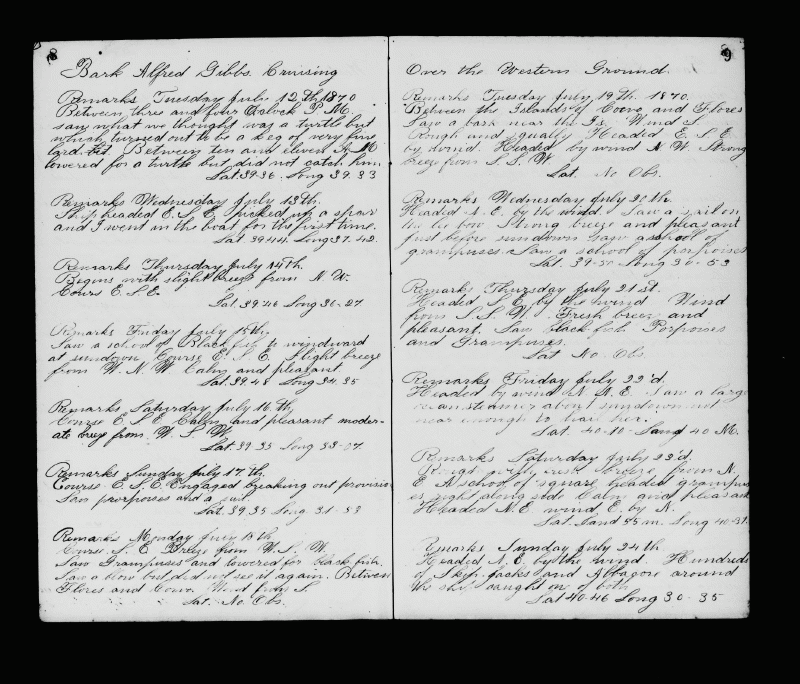 8
Bark Alfred Gibbs. Cruising
Remarks Tuesday July 12th 1870
Between three and four Oclock P. M.
saw what we thought was a turtle but
which turned out to be a keg of very fine
lard. Between ten and eleven A. M
lowered for a turtle but did not catch him
Lat 39-36. Long 39-33
Remarks Wednesday July 13th.
Ship headed E. S. E. picked up a spar
and I went in the boat for the first time.
Lat. 39 44. Long 37-42.
Remarks Thursday July 14th.
Begins with slight breeze from N. W.
Cours E. S. E.
Lat. 39 46 Long 36-27
Remarks Friday July 15th.
Saw a school of Black fish to windward
at sundown, Course E. S. E. Slight breeze
from W. N. W Calm and pleasant.
Lat. 39.48 Long 34.35
Remarks Saturday July 16th,
Course E. S. E Calm and pleasant moder-
ate breeze from W. S. W.
Lat. 39.35 Long 33-07.
Remarks Sunday July 17th.
Course E. S. E. Engaged breaking out provision
Saw porpoises and a sail.
Lat. 39.35 Long 31-53
Remarks Monday July 18th
Course. S. E. Breeze from W. S. W.
Saw Grampuses and lowered for black fish.
Saw a blow but did not see it again. Between
Flores and Corvo. Wind from S.
Lat. No. Obs.
9
Over the Western Ground.
Remarks Tuesday July 19th. 1870.
Between the Islands of Corvo and Flores
Saw a bark near the Is. Wind S.
Rough and squally Headed E. S. E
by wind. Headed by wind N. W. Strong
breeze from S. S. W.
Lat. No Obs.
Remarks Wednesday July 20th.
Headed N. E. by the wind. Saw a sail on
the lee bow Strong breeze and pleasant
Just before sundown saw a school of
grampuses. Saw a school of porpoises
Lat. 39-50 Long 30-53
Remarks Thursday July 21st.
Headed S. E. by the wind. Wind
from S. S. W. Fresh breeze and
pleasant. Saw black fish Porpoises
and Grampuses.
Lat No. Obs.
Remarks Friday July 22'd.
Headed by wind N. N. E. Saw a large
ocean steamer about sundown not
near enough to hail her.
Lat. 40-10 Long 40 M.
Remarks Saturday July 23'd.
breeze, from N.
E A school of square headed grampus
es right along side Calm and pleasant
Headed N. E. wind E. by N.
Lat. Long 40-31.
Remarks Sunday July 24th.
Headed N. E. by the wind. Hundreds
of Skip-jacks and Albagore around
the ship caught one of both
Lat 40-46 Long 30-35